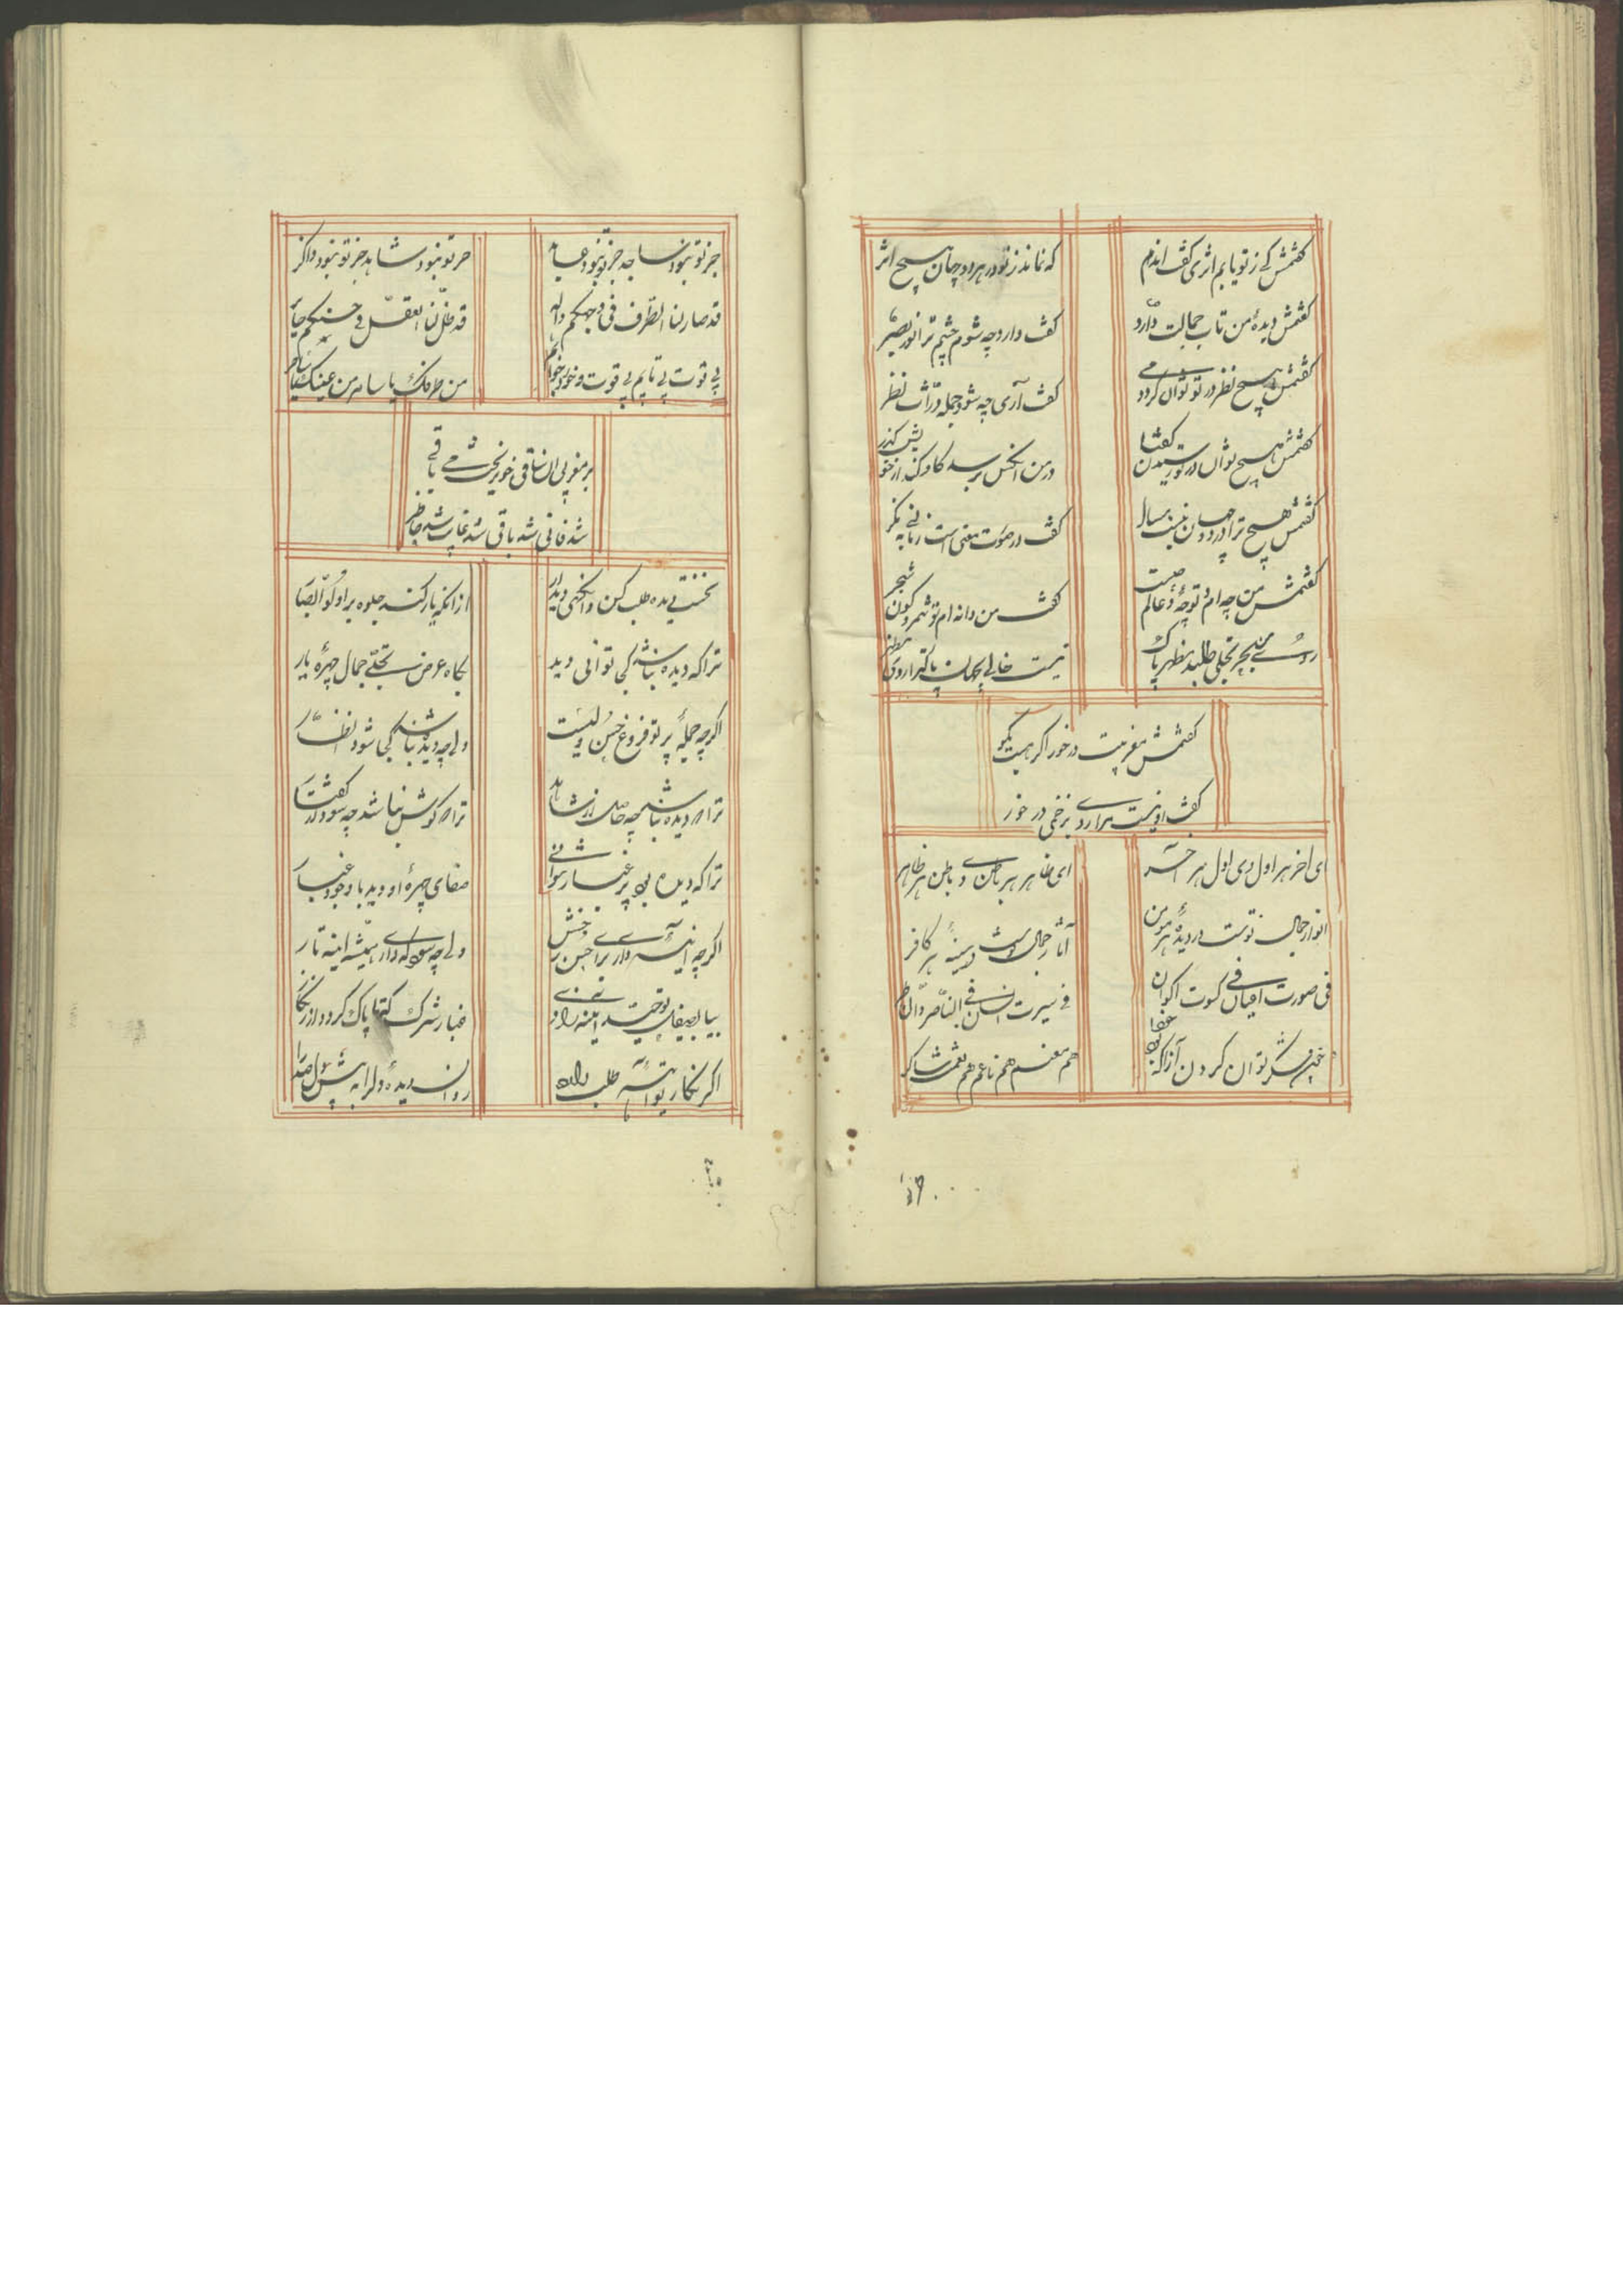 گفتمش کی ز تو یابم اثری گفت اندم
که نماند ز تو در هر دو جهان هیچ اثر
گفتمش دیدهٔ من تاب جمالت دارد
گفت دارد چه شوم چشم ترا نور بصر
گفتمش هیچ نظر در تو توان کرد دمی
گفت آری چه شود جمله ذرات نظر
گفتمش هیچ توان در تو رسیدن گفتا
در من انکس برسد کاو کند از خویش گذر
گفتمش هیچ ترا در دو جهان نیست مسال
گفت در صورت معنی است زمانی بنگر
گفتمش من چه ام و تو چهٔ و عالم چیست
گفت من دانه ام تو ثمر و کون شجر
روی تجلی طلبد مظهر پاک
نیست خالی بجهان پاکتر از وی مظهر
گفتمش مغربیت در خور اگر هست بگو
گفت او نیست سزاوار در خور
ای اخر هر اول وی اول هر آخر
ای ظاهر هر باطن وی باطن هر ظاهر
انوار جمال تست در دیدهٔ هر مومن
آثار جلال تست در سینهٔ هر کافر
فی صورت اعیان فی کسوت اکوان
فی سیرت انسان فی الناصر و
شکر توان کردن آنرا که بود
هم منعم هم ناعم هم نعمت شاکر
جز تو نبود ساجد جز تو نبود عابد
جز تو نبود شاهد جز تو نبود ذاکر
قد صار لنا الطرف فی وجهکم واله
قد ظل لنا العقل فی حسنکم حائر
بی قوت بی تابم بی قوت و خور و خوابم
من طرفک یا ساهر من عینک یا ساحر
بر مغربی ان ساقی چون ریخت می باقی
شد فانی شد باقی شد غایب شد حاضر
نخست دیده طلب کن وانگهی دیدار
از انکه یار کند جلوه بر اولوالابصار
ترا که دیده نباشد کجا توانی دید
بگاه عرض تجلی جمال چهرهٔ یار
اگرچه جمله پرتو فروغ حسن ویست
ولی چه دیده نباشد کجا شود نظار
ترا که دیده نباشد چه حاصل از شاهد
ترا که گوش نباشد چه سود از گفتار
ترا که دیده بود پر غبار نتوانی
صفای چهرهٔ او دید با وجود غبار
اگرچه آینه داری برای حسن رخش
ولی چه سود که داری همیشه اینه تار
بیا بصیقل توحید اینه بزدای
غبار شرک که تا پاک گردد از زنگار
اگر نگار تو آئینه طلب دارد
روان تو دیدهٔ دل را به پیش دل دار